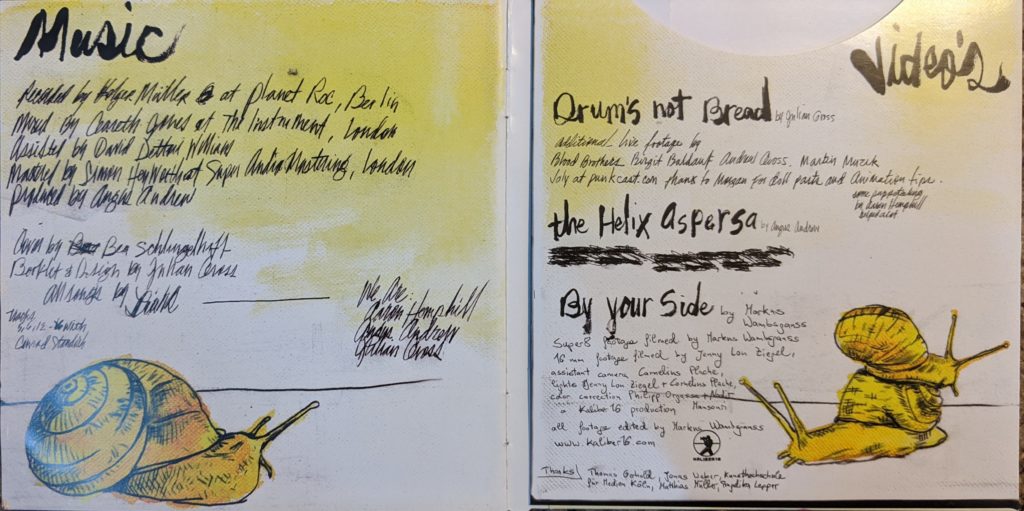 Music
Recorded by Holger Müller at Planet Roc, Berlin
Mixed by Gareth Jones at The Instrument, London
Assisted by David Dettori Williams
Mastered by Simon Heyworth at Super Audio Mastering, London
Produced by Angus Andrew
Cover by Bea Schlingelhoff
Booklet & Design by Julian Gross
all songs by
Conrad Standish
We Are
Aaron Hemphill
Angus Andrew
Julian Gross
Video's
Drum's not Bread by Julian Gross
additional live footage by
Blood Brothers, Birgit Andrew Gross, Martin
Joly at punkcast.com thanks to Morgan for doll parts and Animation tips.
some puppeteering
by Aaron Hemphill
the Helix Aspersa by Angus Andrew
By your Side by Markus
Wambsganss
Super8 footage filmed by Markus Wambsganss
16 mm footage filmed by Jenny Lou Ziegel,
assistant camera Cornelius Plache,
lights Jenny Lou Ziegel + Cornelius Plache,
color correction Philipp Orgassa +
a Kaliber16 production
all footage edited by Markus Wambsganss
www.kaliber16.com
KALIBER16
Thanks! Thomas Jonas Weber, Kunsthochschule
für Medien Köln, Matthias Müller, Lepper